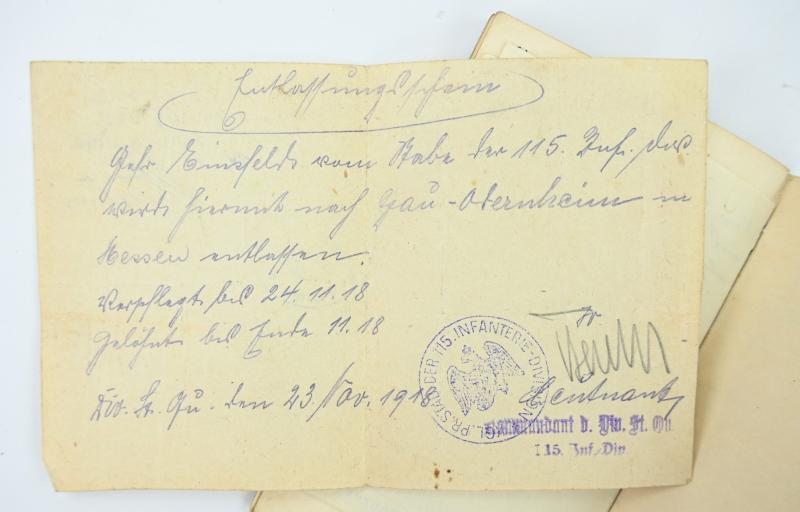 Entlassungsschein
Gefr. Einsfeld vom Stabe der 115. Inf. Div.
wird hiermit nach Gau-Odernheim in
Hessen entlassen.
Verpflegt bis 24.11.18
Gelöhnt bis Ende 11.18
Div. St. Qu. den 23. Nov. 1918
KGL. PR. STAB DER 115. INFANTERIE-DIVISION
Leutnant
Kommandant d. Div. St. Qu.
115. Inf. Div.